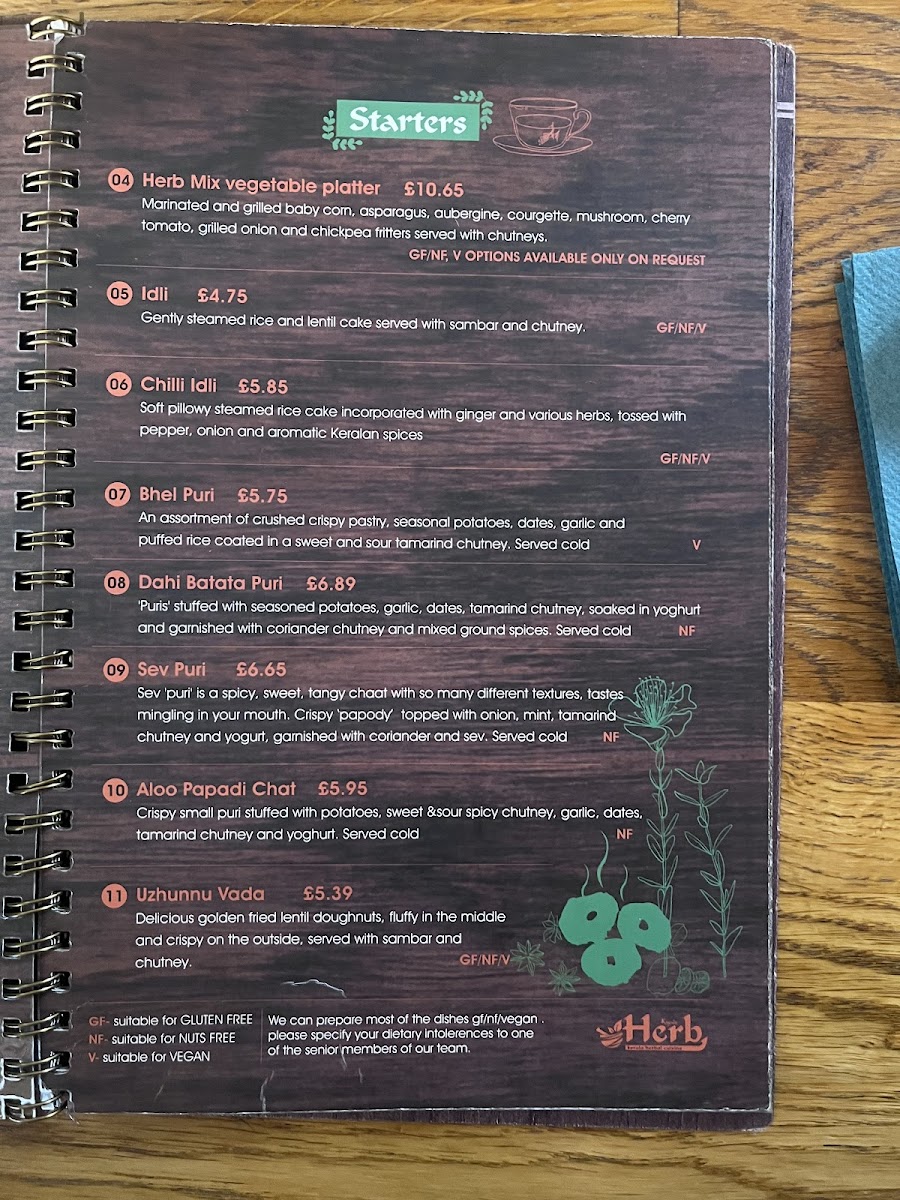 Starters
04 Herb Mix vegetable platter £10.65
Marinated and grilled baby corn, asparagus, aubergine, courgette, mushroom, cherry
tomato, grilled onion and chickpea fritters served with chutneys.
GF/NF, V OPTIONS AVAILABLE ONLY ON REQUEST
05 Idli £4.75
Gently steamed rice and lentil cake served with sambar and chutney. GF/NF/V
06 Chilli Idli £5.85
Soft pillowy steamed rice cake incorporated with ginger and various herbs, tossed with
pepper, onion and aromatic Keralan spices
GF/NF/V
07 Bhel Puri £5.75
An assortment of crushed crispy pastry, seasonal potatoes, dates, garlic and
puffed rice coated in a sweet and sour tamarind chutney. Served cold V
08 Dahi Batata Puri £6.89
'Puris' stuffed with seasoned potatoes, garlic, dates, tamarind chutney, soaked in yoghurt
and garnished with coriander chutney and mixed ground spices. Served cold NF
09 Sev Puri £6.65
Sev 'puri' is a spicy, sweet, tangy chaat with so many different textures, tastes
mingling in your mouth. Crispy 'papody' topped with onion, mint, tamarind
chutney and yogurt, garnished with coriander and sev. Served cold NF
10 Aloo Papadi Chat £5.95
Crispy small puri stuffed with potatoes, sweet &sour spicy chutney, garlic, dates,
tamarind chutney and yoghurt. Served cold NF
11 Uzhunnu Vada £5.39
Delicious golden fried lentil doughnuts, fluffy in the middle
and crispy on the outside, served with sambar and
chutney. GF/NF/V
GF- suitable for GLUTEN FREE
NF- suitable for NUTS FREE
V- suitable for VEGAN
We can prepare most of the dishes gf/nf/vegan .
please specify your dietary intolerences to one
of the senior members of our team.
Herb
kerala herbal cuisine